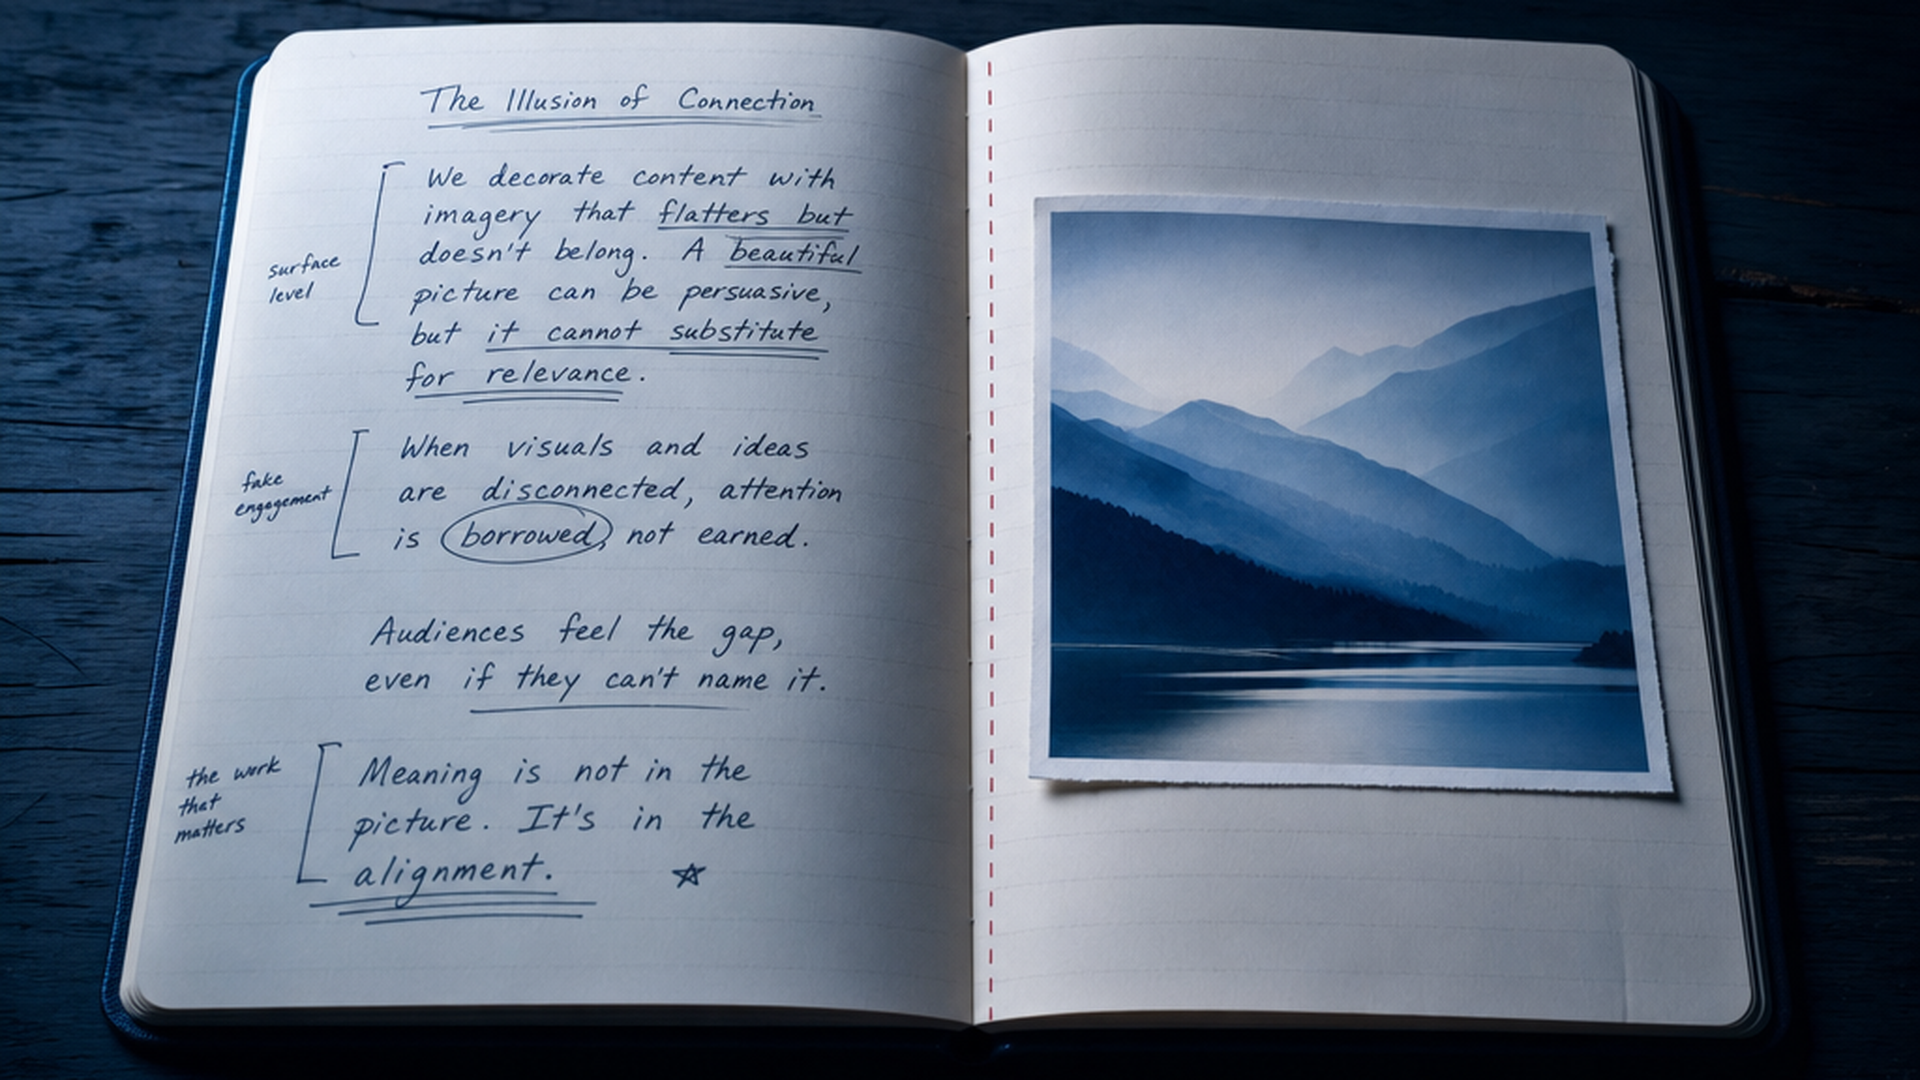 The Illusion of Connection
We decorate content with
imagery that flatters but
doesn't belong. A beautiful
picture can be persuasive,
but it cannot substitute
for relevance.
surface
level
When visuals and ideas
are disconnected, attention
is borrowed, not earned.
fake
engagement
Audiences feel the gap,
even if they can't name it.
Meaning is not in the
picture. It's in the
alignment.
the work
that
matters